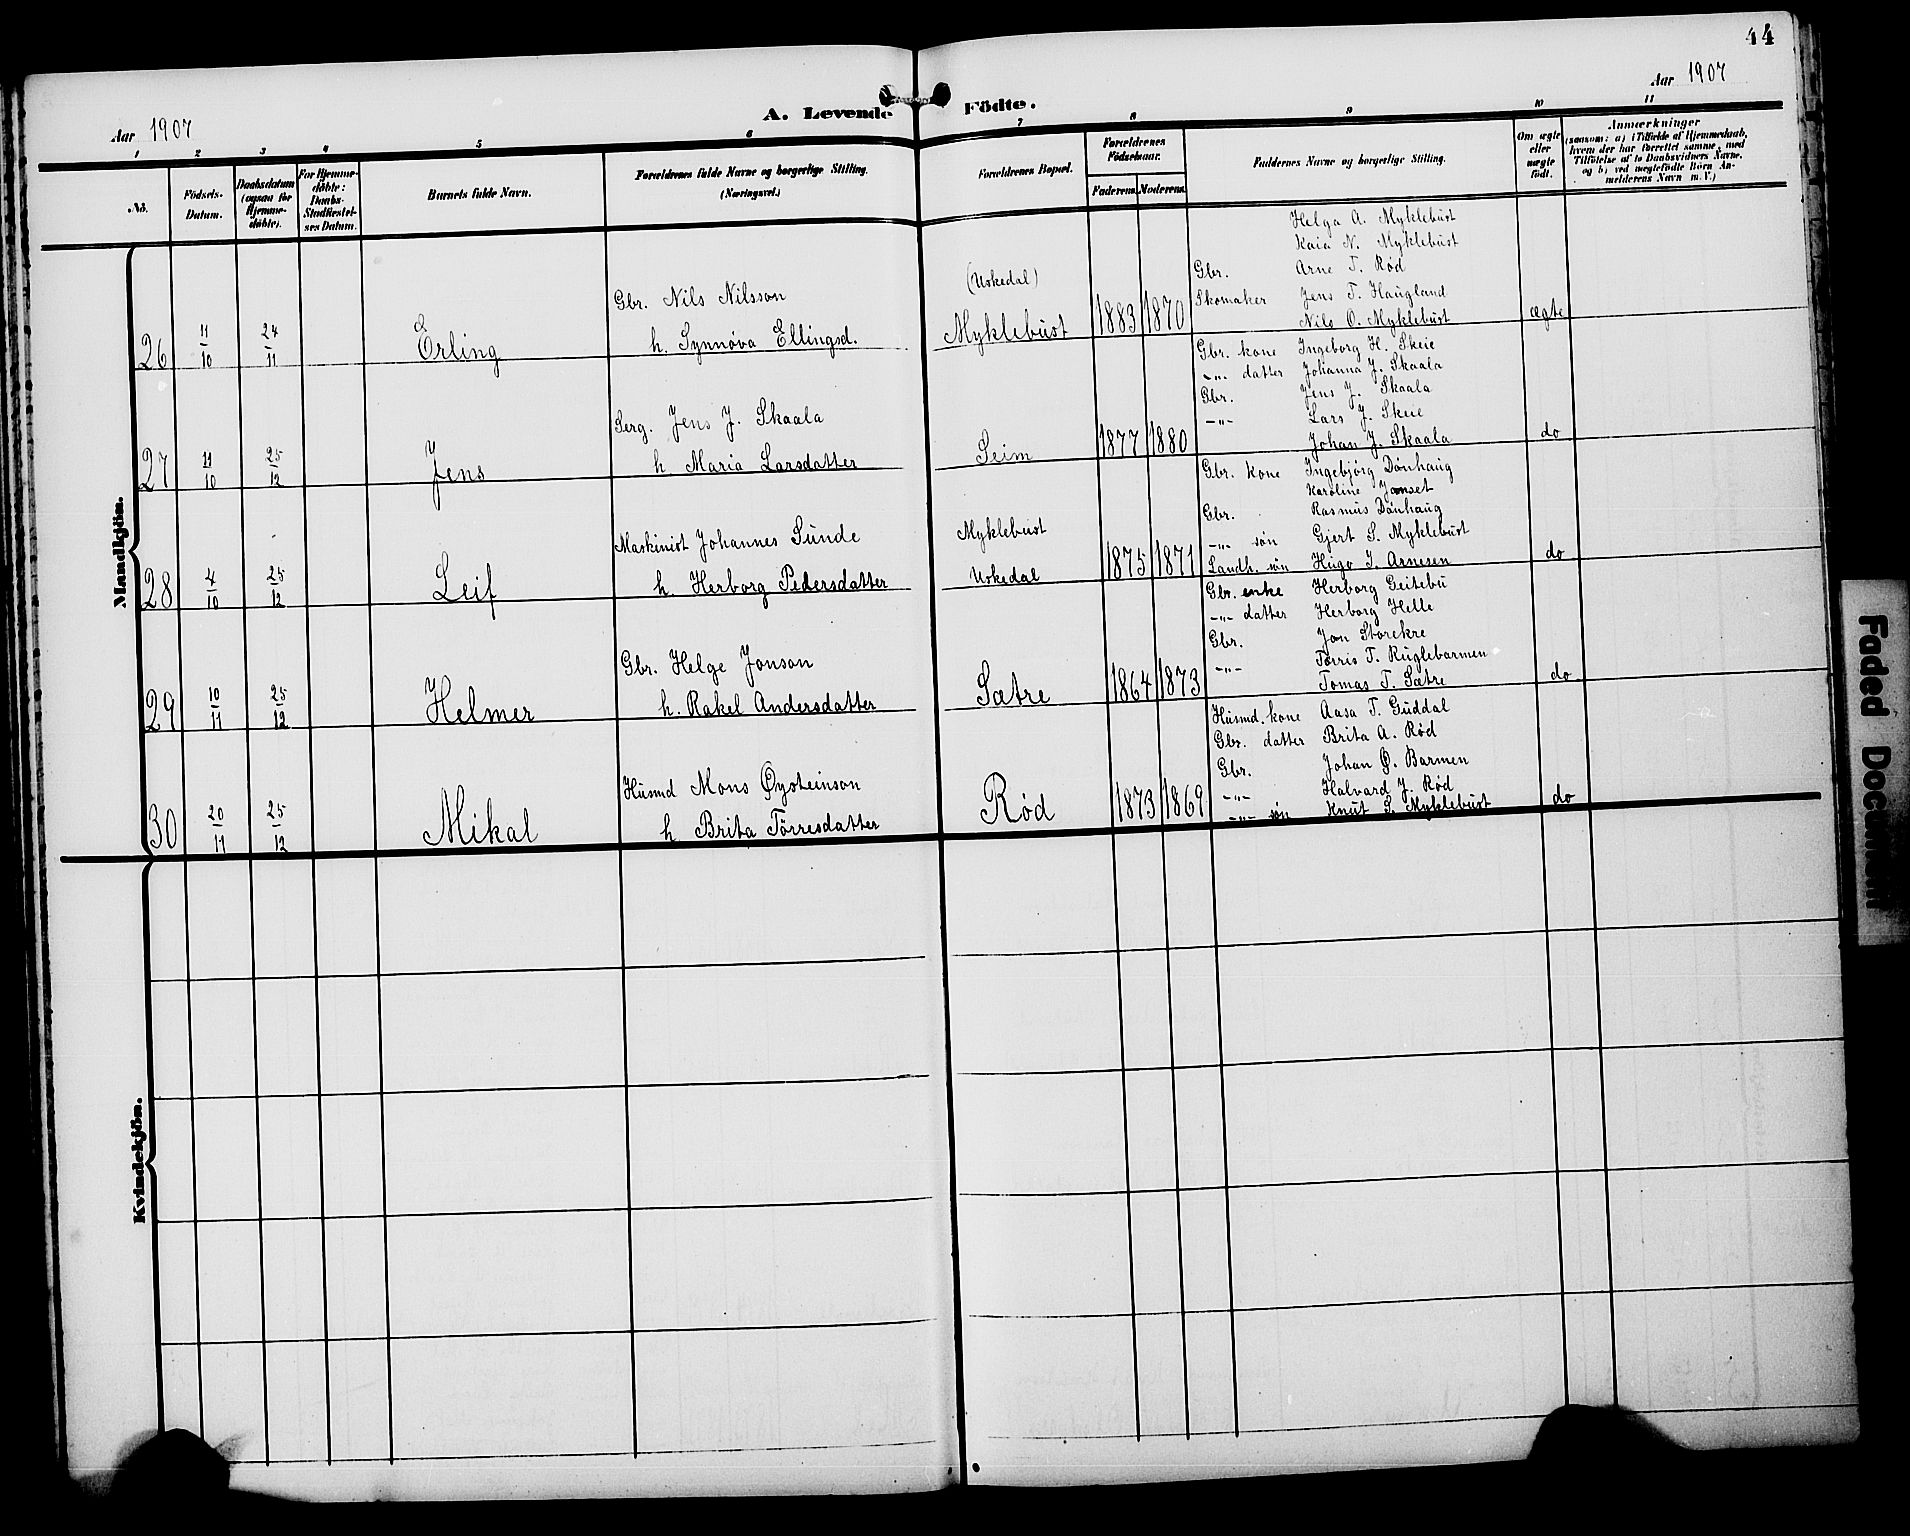 44
Aar 1907
Aar 1907
A. Levende Födte.
1 2 3 4 5 6 7 8 9 10 11
No.
Födsels-
Datum.
Daabsdatum
(ogsaa for
Hjemme-
døbte).
For Hjemme-
døbte:
Daabs-
Stadfæstel-
ses Datum.
Barnets fulde Navn.
Forældrenes fulde Navne og borgerlige Stilling.
(Næringsvei.)
Forældrenes Bopæl.
Forældrenes
Födselsaar.
Faderens. Moderens.
Faddernes Navne og borgerlige Stilling.
Om ægte
eller
uægte
født.
Anmærkninger
(saasom: a) i Tilfælde af Hjemmedaab,
hvem der har forrettet samme, med
Tilföielse af to Daabsvidners Navne,
og b) ved uægtefödte Börn An-
melderens Navn m. V.)
Mandkjön.
26 11/10 24/11 Erling
Gbr. Nils Nilsson
h. Synnøva Ellingsd.
(Uskedal)
Myklebust 1883 1870
Helga A. Myklebust
Kaia N. Myklebust
Gbr. Arne T. Rød
Skomaker Jens T. Haugland
Nils O. Myklebust
ægte
27 11/10 25/12 Jens
Serg. Jens J. Skaala
h Maria Larsdatter
Seim 1877 1880
Gbr. kone Ingeborg H. Skeie
-"- datter Johanna J. Skaala
Gbr. Jens J. Skaala
-"- Lars J. Skeie
Johan J. Skaala
do
28 4/10 25/12 Leif
Maskinist Johannes Sunde
h. Herborg Pedersdatter
Myklebust
Uskedal 1875 1871
Gbr. kone Ingebjørg Dønhaug
Karoline Janset
Gbr. Rasmus Dønhaug
-"- søn Gjert S. Myklebust
Landh. søn Hugo I. Arnesen
do
29 10/11 25/12 Helmer
Gbr. Helge Jonson
h. Rakel Andersdatter
Sætre 1864 1873
Gbr. enke Herborg Geitebu
-"- datter Herborg Helle
Gbr. Jon Storekre
-"- Tørris T. Kuglebarmen
Tomas T. Sætre
do
30 20/11 25/12 Mikal
Husmd Mons Øysteinson
h Brita Tørresdatter
Rød 1873 1869
Husmd. kone Aasa T. Guddal
Gbr. datter Brita A. Rød
Gbr. Johan Ø. Barmen
-"- Halvard J. Rød
-"- søn Knut S. Myklebust
do
Kvindekjön.
Faded Document